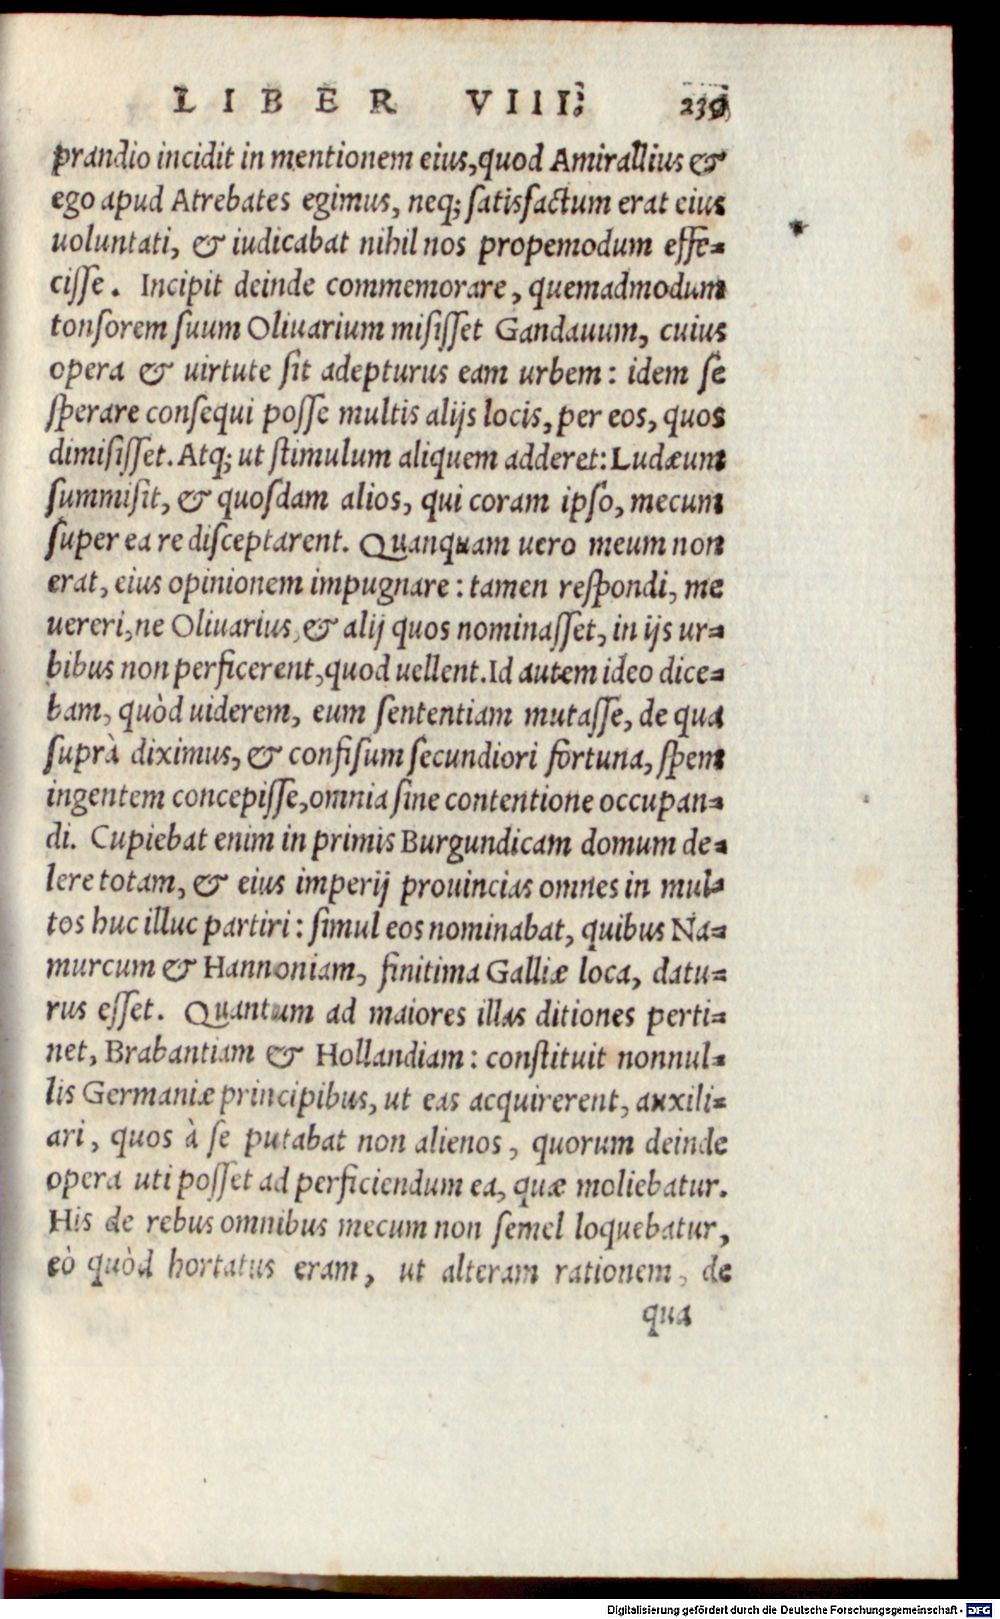 LIBER VIII. 239
prandio incidit in mentionem eius, quod Amirallius &
ego apud Atrebates egimus, neq; satisfactum erat eius
uoluntati, & iudicabat nihil nos propemodum effe-
cisse. Incipit deinde commemorare, quemadmodum
tonsorem suum Oliuarium misisset Gandauum, cuius
opera & uirtute sit adepturus eam urbem: idem se
sperare consequi posse multis alijs locis, per eos, quos
dimisisset. Atq; ut stimulum aliquem adderet: Ludæum
summisit, & quosdam alios, qui coram ipso, mecum
super ea re disceptarent. Quanquam uero meum non
erat, eius opinionem impugnare: tamen respondi, me
uereri, ne Oliuarius, & alij quos nominasset, in ijs ur-
bibus non perficerent, quod uellent. Id autem ideo dice-
bam, quòd uiderem, eum sententiam mutasse, de qua
suprà diximus, & confisum secundiori fortuna, spem
ingentem concepisse, omnia sine contentione occupan-
di. Cupiebat enim in primis Burgundicam domum de-
lere totam, & eius imperij prouincias omnes in mul-
tos huc illuc partiri: simul eos nominabat, quibus Na-
murcum & Hannoniam, finitima Galliæ loca, datu-
rus esset. Quantum ad maiores illas ditiones perti-
net, Brabantiam & Hollandiam: constituit nonnul-
lis Germaniæ principibus, ut eas acquirerent, auxili-
ari, quos à se putabat non alienos, quorum deinde
opera uti posset ad perficiendum ea, quæ moliebatur.
His de rebus omnibus mecum non semel loquebatur,
eò quòd hortatus eram, ut alteram rationem, de
qua
Digitalisierung gefördert durch die Deutsche Forschungsgemeinschaft - DFG